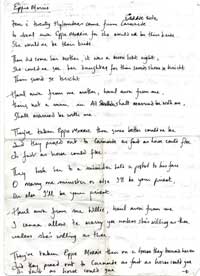 Eppie Morrie
Four & twenty Hylandmen came from Carmarde
to steal awa Eppie Morrie for she would not be their bride
She would no be their bride
Then out came her mother, it was a moon light night,
She could na see her daughter for their swords shone so bricht
Their swords so bricht
Haud awa from me mother, haud awa from me,
There's not a man in All shall married be with me,
Shall married be with me.
They've taken Eppie Morrie then some better could na be
And they rode to as fast as horse could flee
As fast as horse could flee
They took her to a minister held a pistol to his face
O marry me minister or else I'll be your priest,
Or else I'll be your priest
Haud awa from me Willie, haud awa from me
I canna allow to marry you unless she's willing as thee
unless she's willing as thee.
They've taken Eppie Morrie then on a horse they bound her on
And they rode to as fast as horse could gae
As fast as horse could gae